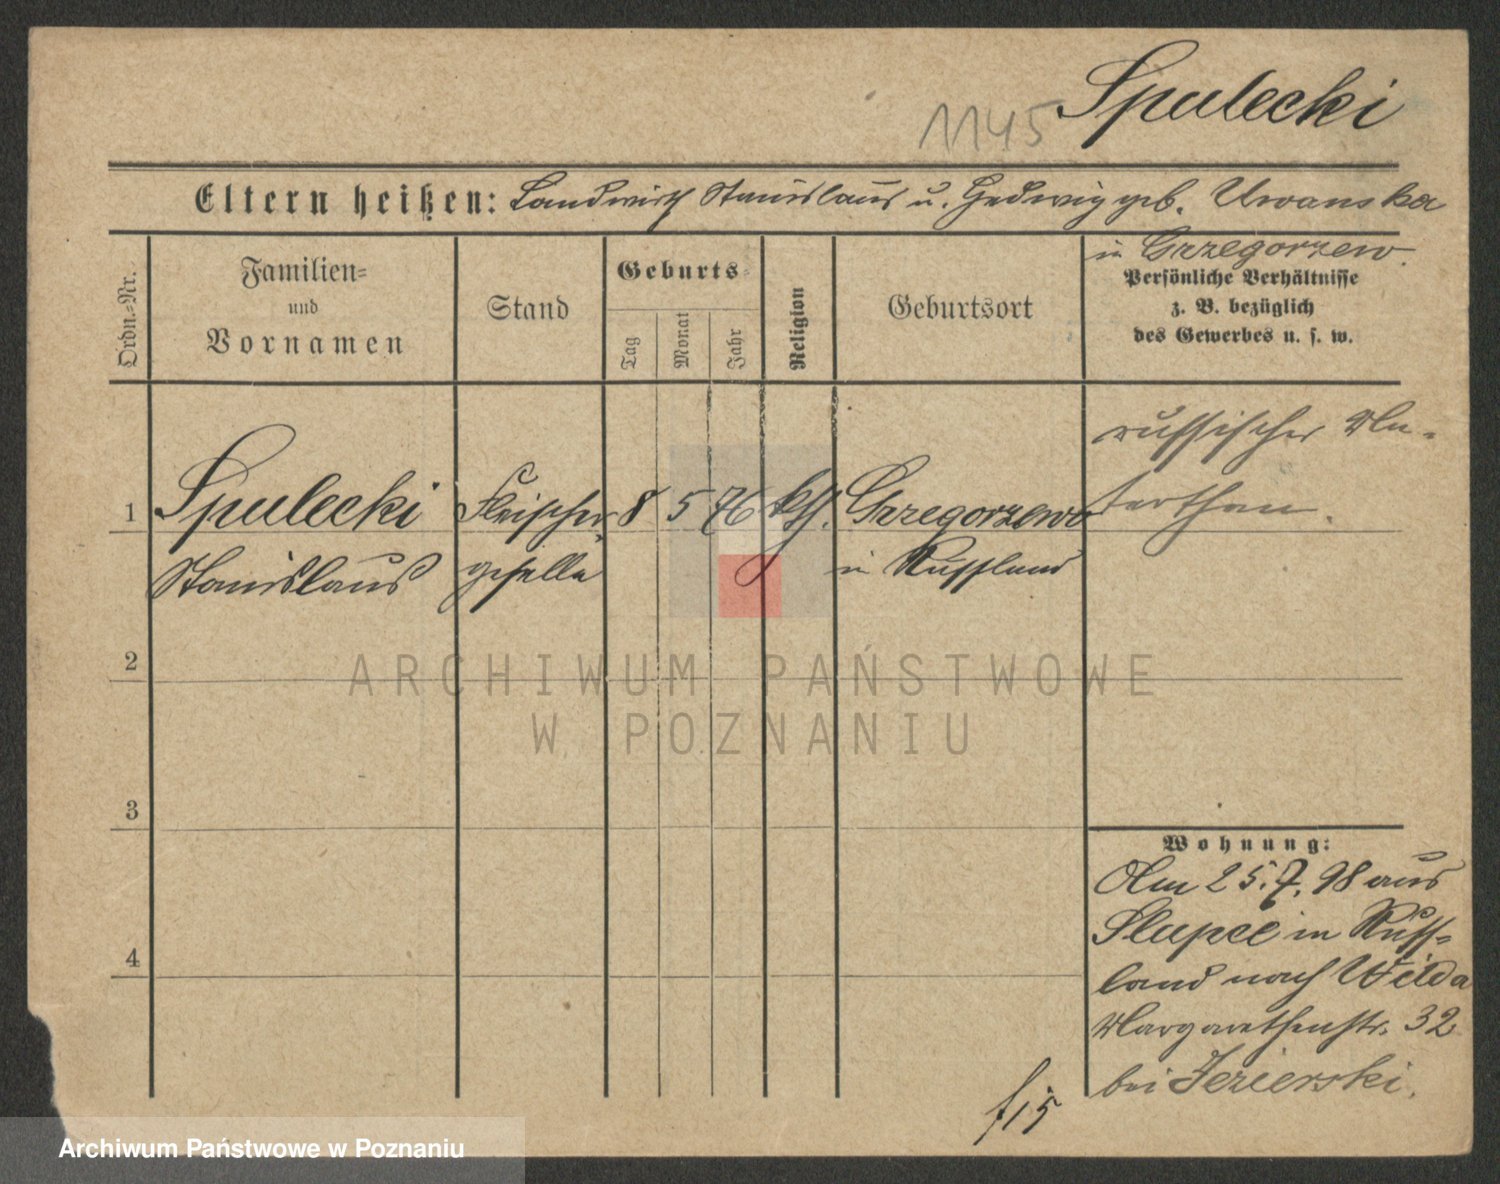 1145 Spulecki
Eltern heißen: Landwirth Stanislaus u. Hedwig geb. Urvanska
in Grzegorzew.
Ordn.-Nr.
Familien-
und
Vornamen
Stand
Geburts-
Tag
Monat
Jahr
Religion
Geburtsort
Persönliche Verhältnisse
z. B. bezüglich
des Gewerbes u. s. w.
1 Spulecki Fleischer- 8 5 76 kth. Grzegorzewo
Stanislaus geselle in Russland
russischer Un-
terthan.
2
3
4
Wohnung:
Am 25.7.98 aus
Slupce in Russ-
land nach Wilda
Margarethenstr. 32
bei Jezierski.
f15
ARCHIWUM PAŃSTWOWE
W POZNANIU
Archiwum Państwowe w Poznaniu